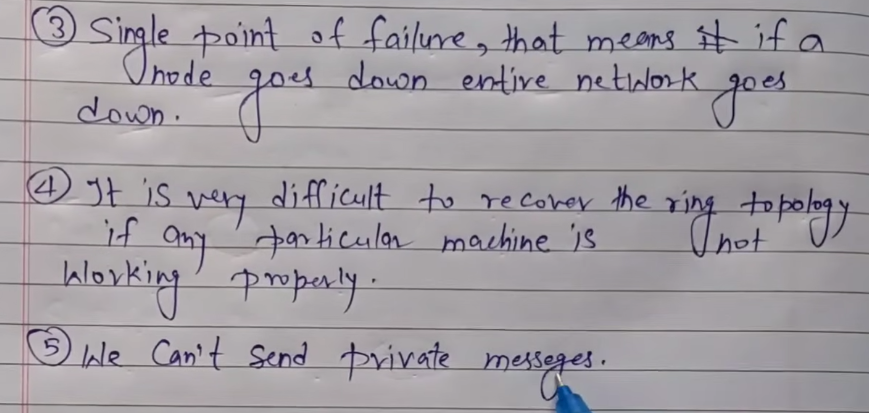 ③ Single point of failure, that means it if a
node goes down entire network goes
down.
④ It is very difficult to recover the ring topology
if any particular machine is not
Working properly.
⑤ We Can't Send private messeges.